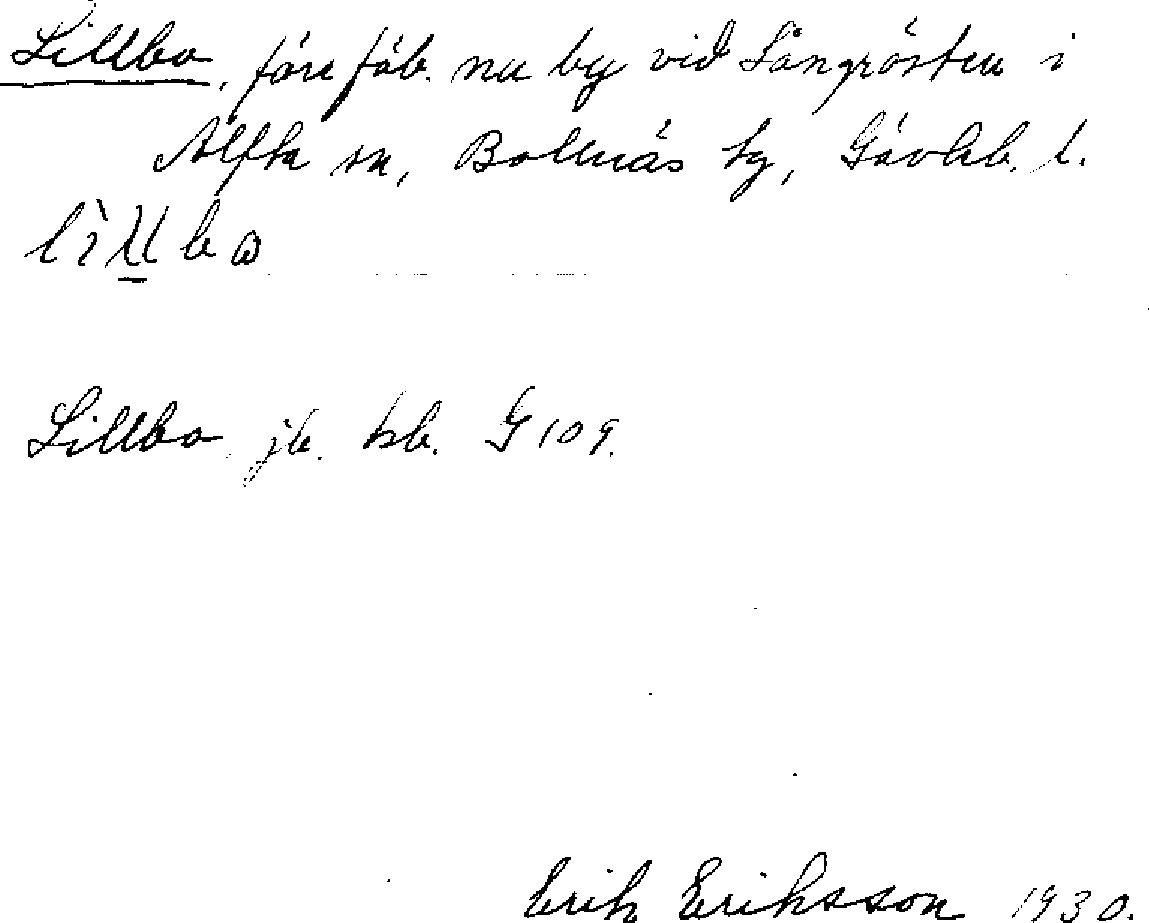 Lillbo, före fäb. nu by vid Långrösten i
Alfta sn, Bollnäs tg, Gävleb. l.
lìllbo
Lillbo jb. kb. G 109.
Erik Eriksson 1930.